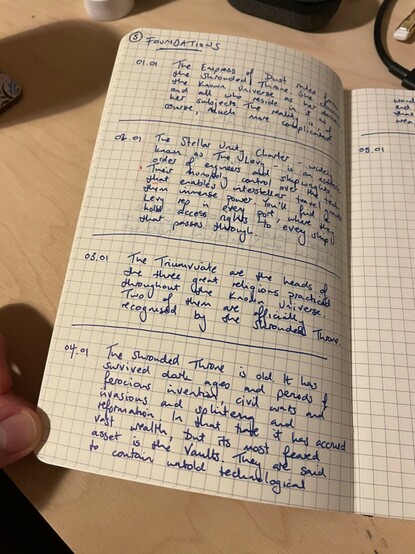 ③ FOUNDATIONS
01.01 The Empress of Dust rules from
the Shrouded Throne. She
the known universe as her
and all who reside in it
her subjects. The reality is of
course, much more complicated
02.01 The Stellar Unity Charter - widely
known as The Levy - is an
order of engineers and shipwrights
Their monopoly control over the tech
that enables interstellar travel grants
them immense power. You'll find a
Levy rep in every port where they
hold access rights to every ship
that passes through.
03.01 The Triumvirate are the heads of
the three great religious practices
throughout the known universe.
Two of them are officially
recognised by the Shrouded Throne.
04.01 The Shrouded Throne is old. It has
survived dark ages and periods of
ferocious invention, civil wars and
invasions and splintering and
reformation. In that time it has accrued
vast wealth, but its most feared
asset is the Vaults. They are said
to contain untold technological
05.01